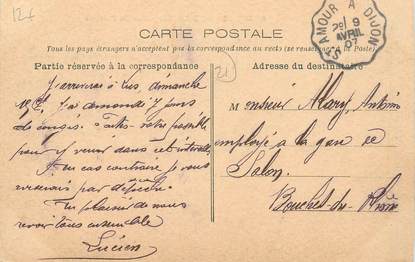 12f
St AMOUR A DIJON
29 9
AVRIL
07
CARTE POSTALE
Tous les pays étrangers n'acceptent pas la correspondance au recto (se renseigner à la Poste)
Partie réservée à la correspondance
Adresse du destinataire
21
J'arriverai à Lus, dimanche
J'ai demandé 7 jours
de congés. Faites votre possible
pour y venir dans cet intervalle,
Au cas contraire je vous
reverrais par dépêche.
Au plaisir de nous
revoir tous ensemble
Lucien
Monsieur Mary Antoine
employé a la gare de
Salon.
Bouches-du-Rhône